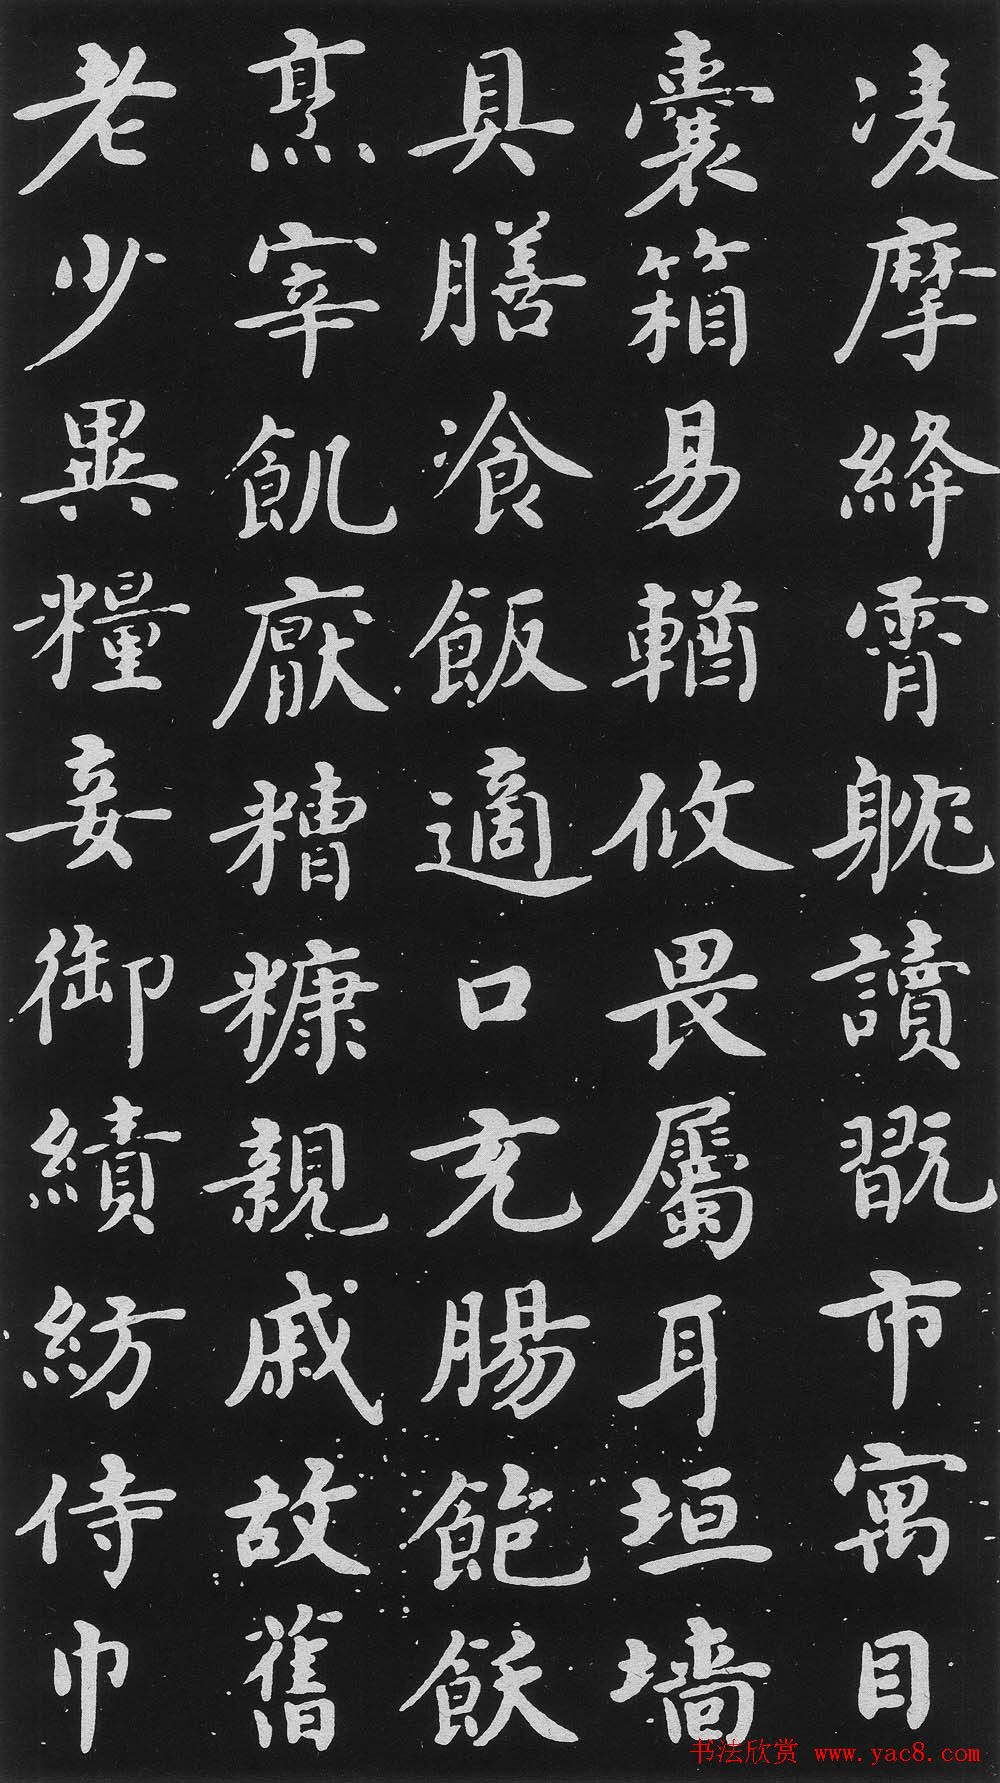 凌摩絳霄躭讀翫市寓目
囊箱易輶攸畏屬耳垣墻
具膳飡飯適口充腸飽飫
烹宰飢厭糟糠親戚故舊
老少異糧妾御績紡侍巾
书法欣赏 www.yac8.com